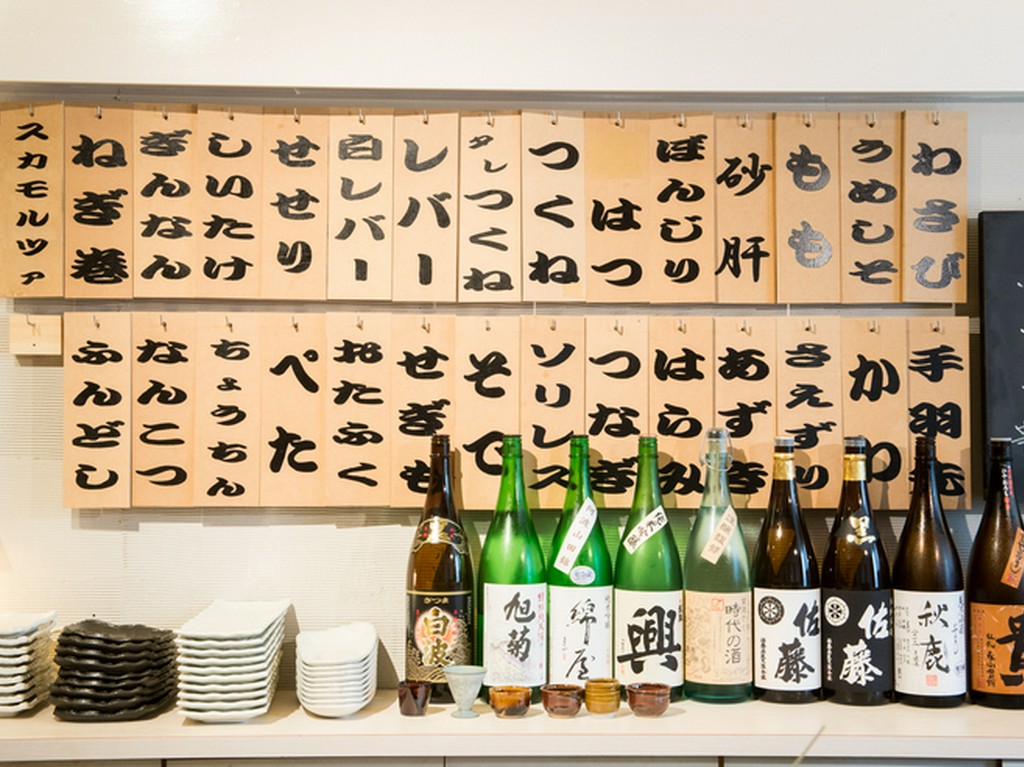 わさび
うめしそ
もも
砂肝
ぼんじり
はつ
つくね
タレつくね
レバー
白レバー
せせり
しいたけ
ぎんなん
ねぎ巻
スカモルツァ
手羽先
かわ
さえずり
あずき
はらみ
つなぎ
ソリレス
そで
せぎも
おたふく
ぺた
ちょうちん
なんこつ
ふんどし
さつま
白波
旭菊
綿屋
興
時代の酒
佐藤
黒
佐藤
秋鹿